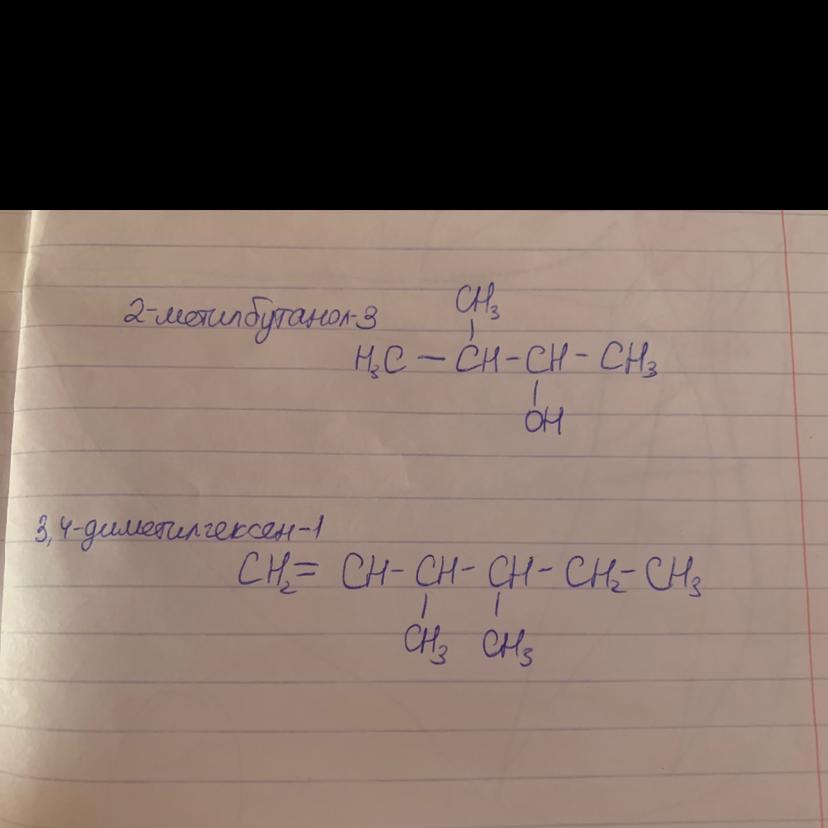 2-метилбутанол-3
CH₃
H₃C — CH - CH - CH₃
OH
3,4-диметилгексен-1
CH₂= CH - CH - CH - CH₂ - CH₃
CH₃ CH₃